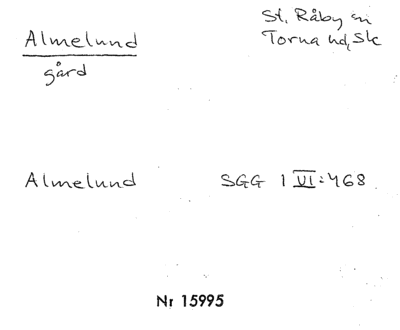 Almelund
gård
St. Råby sn
Torna hd, Sk
Almelund SGG 1 VI:468
Nr 15995